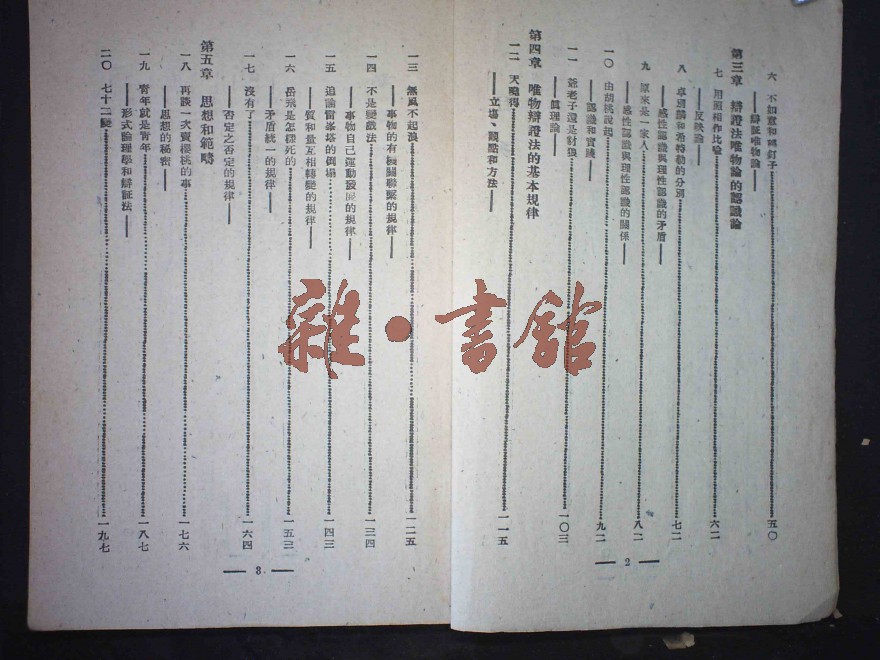 六 不如意和碰釘子……五〇
——辯証唯物論——
第三章 辯證法唯物論的認識論
七 用照相作比喻……六二
——反映論——
八 卓別麟和希特勒的分別……七二
——感性認識與理性認識的矛盾——
九 原來是一家人……八二
——感性認識與理性認識的關係——
一〇 由胡桃說起……九二
——認識和實踐——
一一 爺老子還是豺狼……一〇三
——眞理論——
第四章 唯物辯證法的基本規律
一二 天曉得……一一五
——立場、觀點和方法——
— 2 —
一三 無風不起浪……一二五
——事物的有機關聯繫的規律——
一四 不是變戲法……一三四
——事物自己運動發展的規律——
一五 追論雷峯塔的倒塌……一四三
——質和量互相轉變的規律——
一六 岳飛是怎樣死的……一五三
——矛盾統一的規律——
一七 沒有了……一六四
——否定之否定的規律——
第五章 思想和範疇
一八 再談一次賣櫻桃的事……一七六
——思想的秘密——
一九 靑年就是靑年……一八七
——形式論理學和辯証法——
二〇 七十二變……一九七
— 3 —
雜·書館